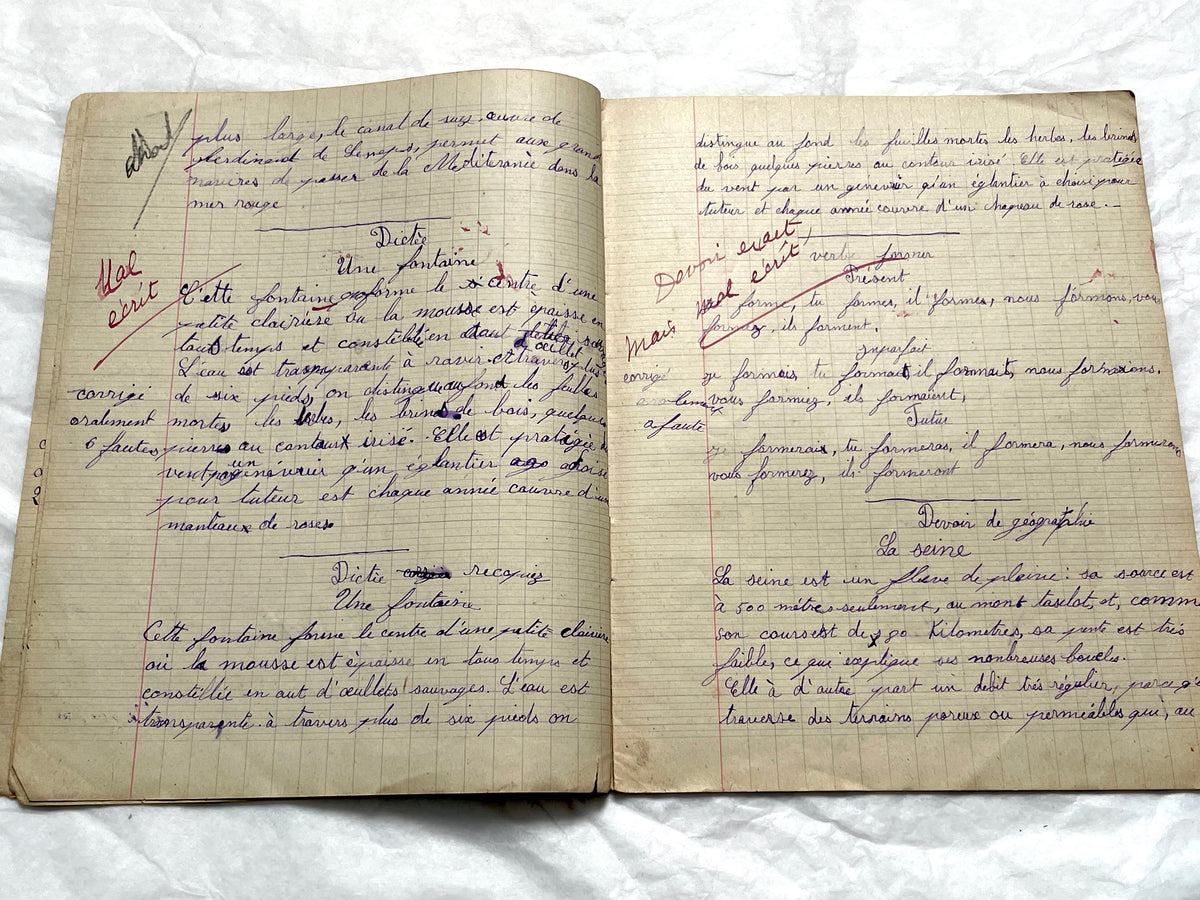 plus large, le canal de suez, œuvre de
ferdinant de Lesseps, permet aux grand
navires de passer de la Méditeranée dans la
mer rouge
Dictée
Une fontaine
Mal
écrit
C'ette fontaine forme le centre d'une
petite clairiere ou la mousse est épaisse en
touts temps et constélée en
L'eau est transparante à ravir. et travers plus
corrigé
de six pieds, on distingue au fond les feuilles
oralement
mortes les herbes, les brins de bois, quelques
6 fautes
pierres au contour irisé. Elle est protégée
vent par un genevrier q'un églantier a choisi
pour tuteur est chaque année couvre d'un
manteaux de roses.
Dictée recopiez
Une fontaine
Cette fontaine forme le centre d'une petite clairiere
où la mousse est épaisse en tous temps et
constellée en aut d'œullets sauvages. L'eau est
transparente à travers plus de six pieds on
distingue au fond les feuilles mortes les herbes, les brins
de bois quelques pierres au contour irisé Elle est protégée
du vent par un génevrir q'un églantier à choisi pour
tuteur et chaque année couvre d'un chapeau de rose.
Devoir exact
Mais mal écrit
verbe former
Présent
je forme, tu formes, il formes, nous formons, vous
formez, ils forment.
imparfait
corrigé
je formais, tu formait, il formait, nous formions,
vous formiez, ils formaient,
faute
Futur
je formerai, tu formeras, il formera, nous formerons
vous formerez, ils formeront
Devoir de géographie
La seine
La seine est un fleve de plaine : sa source est
à 500 métres seulement, au mont tasselot, et, comm
son cours est de Kilometres, sa pente est trés
faible, ce qui explique ses nonbreuses boucles.
Elle à d'autre part un debit trés régulier, parce q'
traverse des terrains poreux ou perméables qui, au